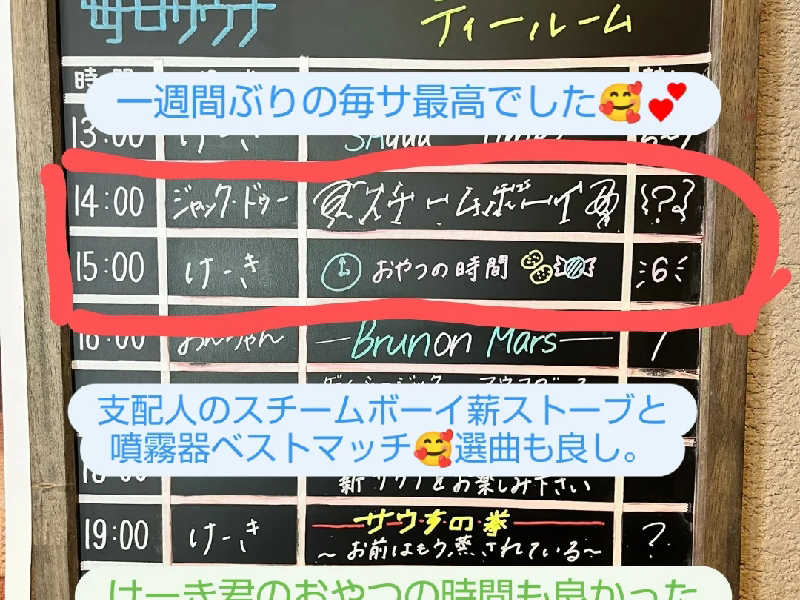 毎日サウナ
ティールーム
一週間ぶりの毎サ最高でした🥰💕
13:00 けーき
14:00 ジャック・ドゥー スチームボーイ {?}
15:00 けーき おやつの時間 6
おんちゃん Brunon Mars
支配人のスチームボーイ薪ストーブと
噴霧器ベストマッチ🥰選曲も良し。
お楽しみ下さい
19:00 けーき サウナの拳 ?
〜お前はもう蒸されている〜
けーき君のおやつの時間も良かった